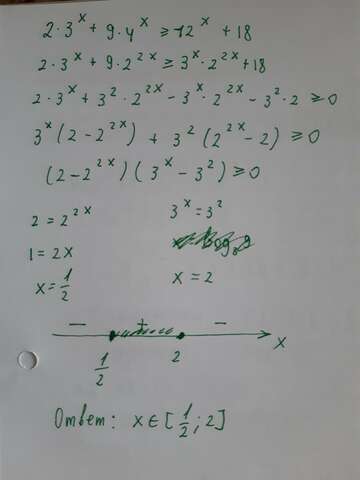 2·3ˣ + 9·4ˣ ≥ 12ˣ + 18
2·3ˣ + 9·2²ˣ ≥ 3ˣ·2²ˣ + 18
2·3ˣ + 3²·2²ˣ − 3ˣ·2²ˣ − 3²·2 ≥ 0
3ˣ(2 − 2²ˣ) + 3²(2²ˣ − 2) ≥ 0
(2 − 2²ˣ)(3ˣ − 3²) ≥ 0
2 = 2²ˣ 3ˣ = 3²
1 = 2x
x = 1/2 x = 2
− + −
1/2 2 x
Ответ: x ∈ [1/2; 2]